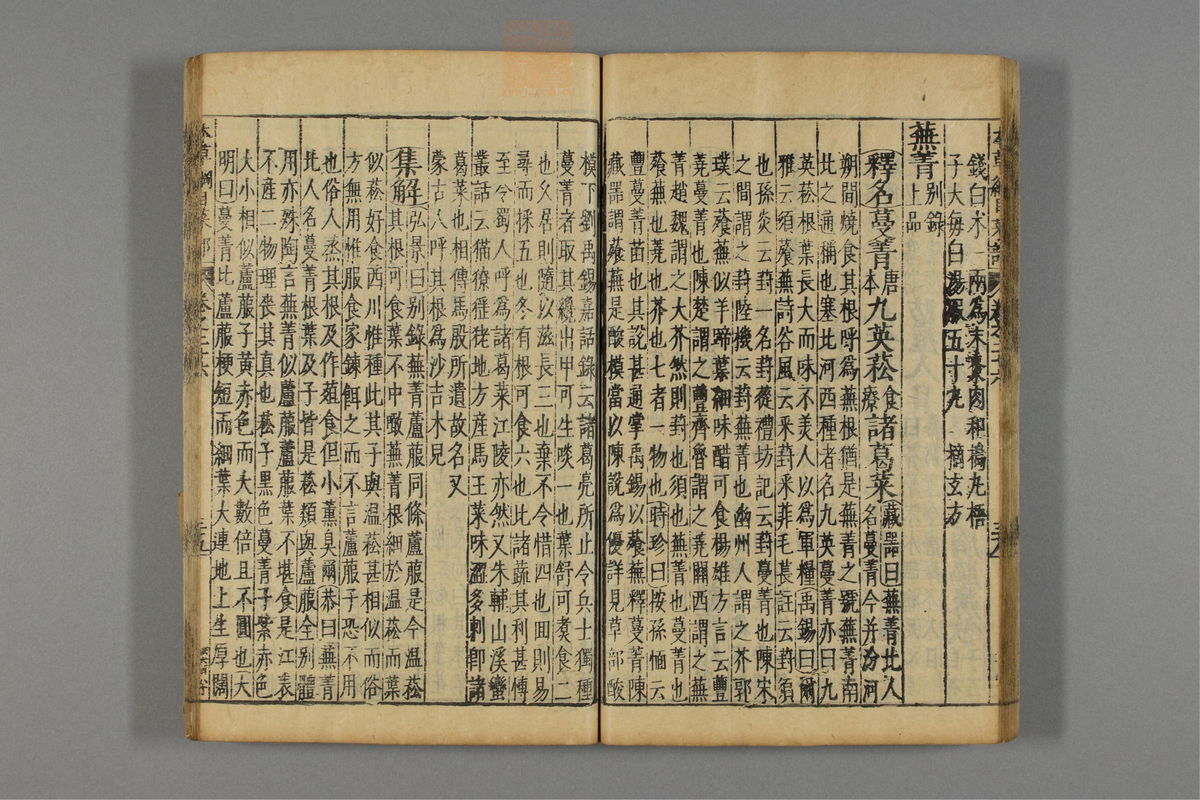 錢白木一兩爲末棗肉和擣丸梧
子大每白湯服五十丸 摘玄方
蕪菁
別錄
上品
釋名蔓菁唐本九英菘食療諸葛菜藏器曰蕪菁北人
名蔓菁今并汾河
朔間燒食其根呼爲蕪根猶是蕪菁之號蕪菁南
北之通稱也塞北河西種者名九英蔓菁亦曰九
英菘根葉長大而味不美人以爲軍糧禹錫曰爾
雅云須薞蕪詩谷風云采葑采菲毛萇註云葑須
也孫炎云葑一名葑蓯禮坊記云葑蔓菁也陳宋
之間謂之葑陸機云葑蕪菁也幽州人謂之芥郭
璞云薞蕪似羊蹄葉細味醋可食楊雄方言云豐
蕘蔓菁也陳楚謂之豐齊魯謂之蕘關西謂之蕪
菁趙魏謂之大芥然則葑也須也蕪菁也蔓菁也
薞蕪也蕘也芥也七者一物也時珍曰按孫愐云
豐蔓菁苗也其說甚通掌禹錫以薞蕪釋蔓菁陳
藏器謂薞蕪是酸模當以陳說爲優詳見草部酸
模下劉禹錫嘉話錄云諸葛亮所止令兵士獨種
蔓菁者取其纔出甲可生啖一也葉舒可煑食二
也久居則隨以滋長三也棄不令惜四也回則易
尋而採五也冬有根可食六也比諸蔬其利甚博
至今蜀人呼爲諸葛菜江陵亦然又朱輔山溪蠻
叢話云猫獠猺狫地方產馬王菜味澀多刺卽諸
葛菜也相傳馬殷所遺故名又
蒙古人呼其根爲沙吉木兒
集解弘景曰別錄蕪菁蘆菔同條蘆菔是今温菘
其根可食葉不中噉蕪菁根細於温菘而葉
似菘好食西川惟種此其子與温菘甚相似而俗
方無用惟服食家鍊餌之而不言蘆菔子恐不用
也俗人蒸其根及作葅食但小薰臭爾恭曰蕪菁
北人名蔓菁根葉及子皆是菘類與蘆菔全別體
用亦殊陶言蕪菁似蘆菔蘆菔葉不堪食是江表
不產二物理喪其真也菘子黑色蔓菁子紫赤色
大小相似蘆菔子黃赤色而大數倍且不圓也大
明曰蔓菁比蘆菔梗短而細葉大連地上生厚闊